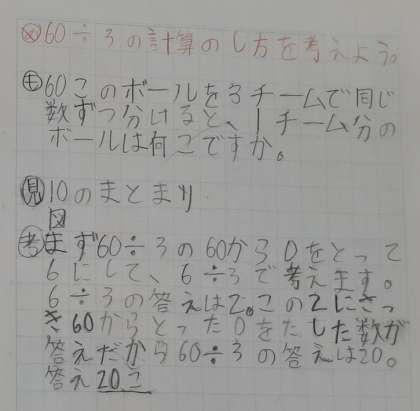 め60÷3の計算のし方を考えよう。
も60このボールを3チームで同じ
数ずつ分けると、1チーム分の
ボールは何こですか。
見10のまとまり
図
考まず60÷3の60から0をとって
6にして、6÷3で考えます。
6÷3の答えは2。この2にさっ
き60からとった0をたした数が
答えだから60÷3の答えは20。
答え20こ